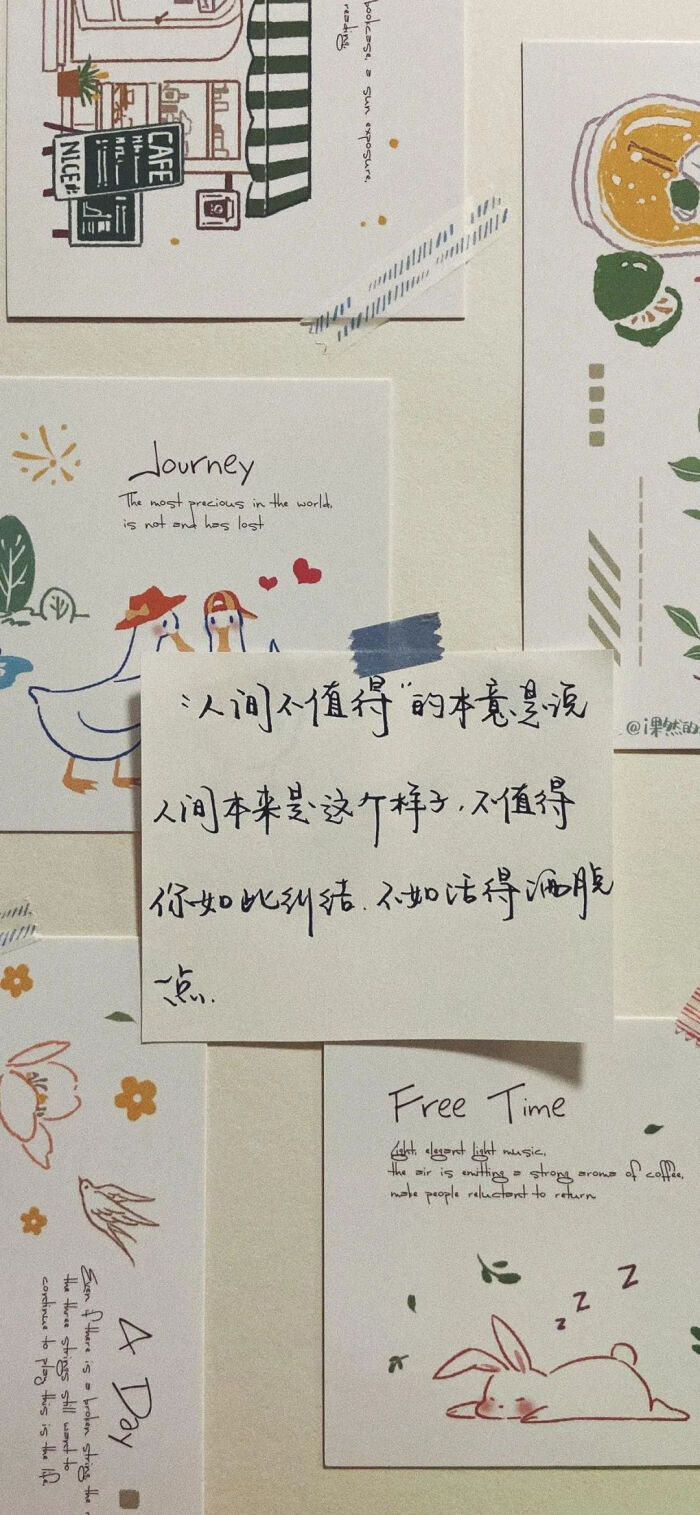 bookcase, a sun exposure,
reading.
CAFE
NICE
Journey
The most precious in the world,
is not and has lost
“人间不值得”的本意是说
人间本来是这个样子，不值得
你如此纠结．不如活得洒脱
一点．
@i果然的
Free Time
Light, elegant light music,
the air is emitting a strong aroma of coffee,
make people reluctant to return
A Day
Even if there is a broken string the
the three strings still want to
continue to play this is the life.